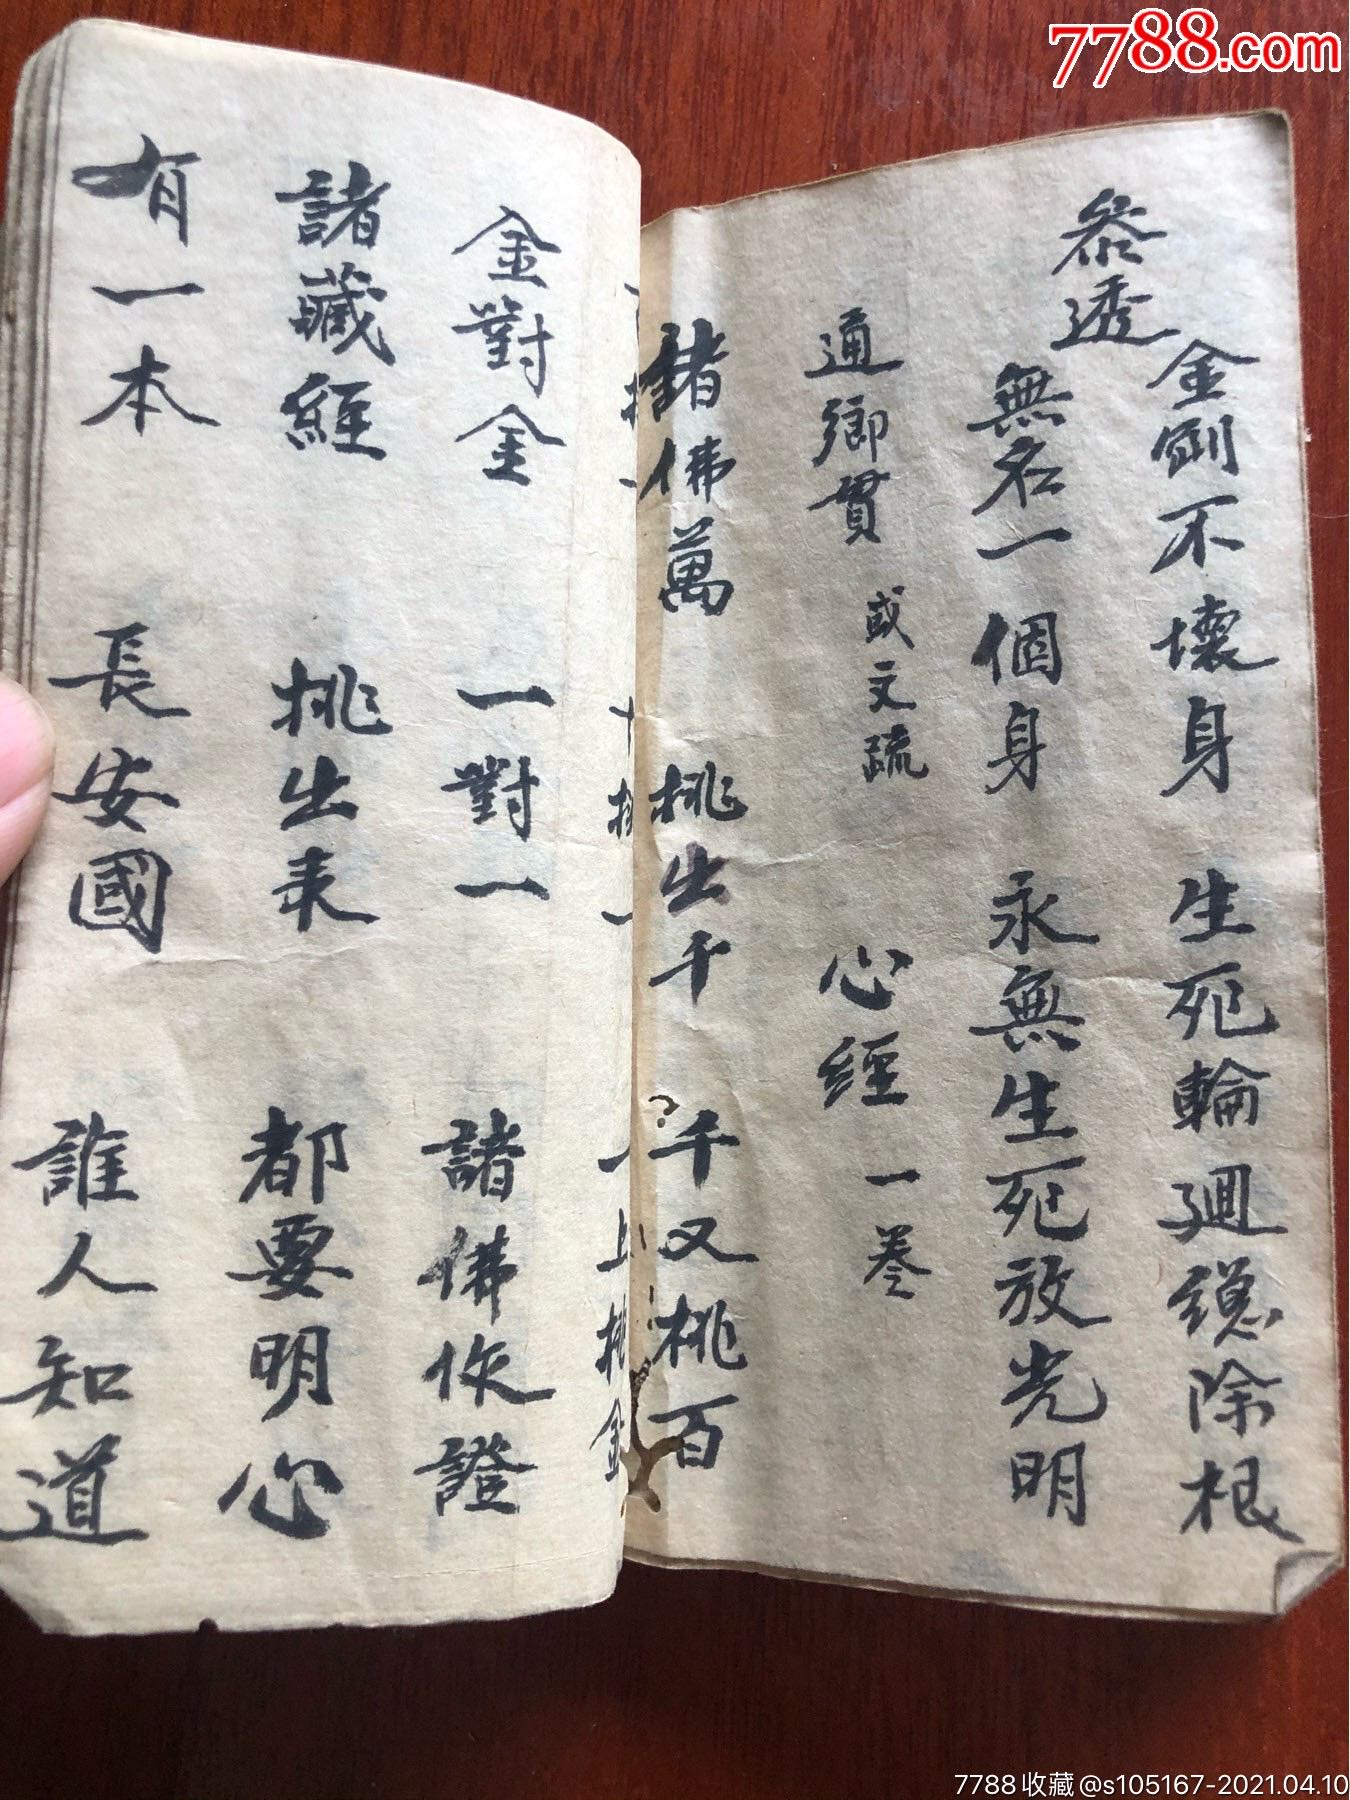 叅透 金剛不壞身 生死輪廻總除根
無名一個身 永無生死放光明
通鄉貫 或文疏 心經 一卷
諸佛萬 挑出千 千又挑百
金對金 一對一 諸佛作證
諸藏經 挑出来 都要明心
有一本 長安國 誰人知道
7788.com
7788收藏@s105167-2021.04.10